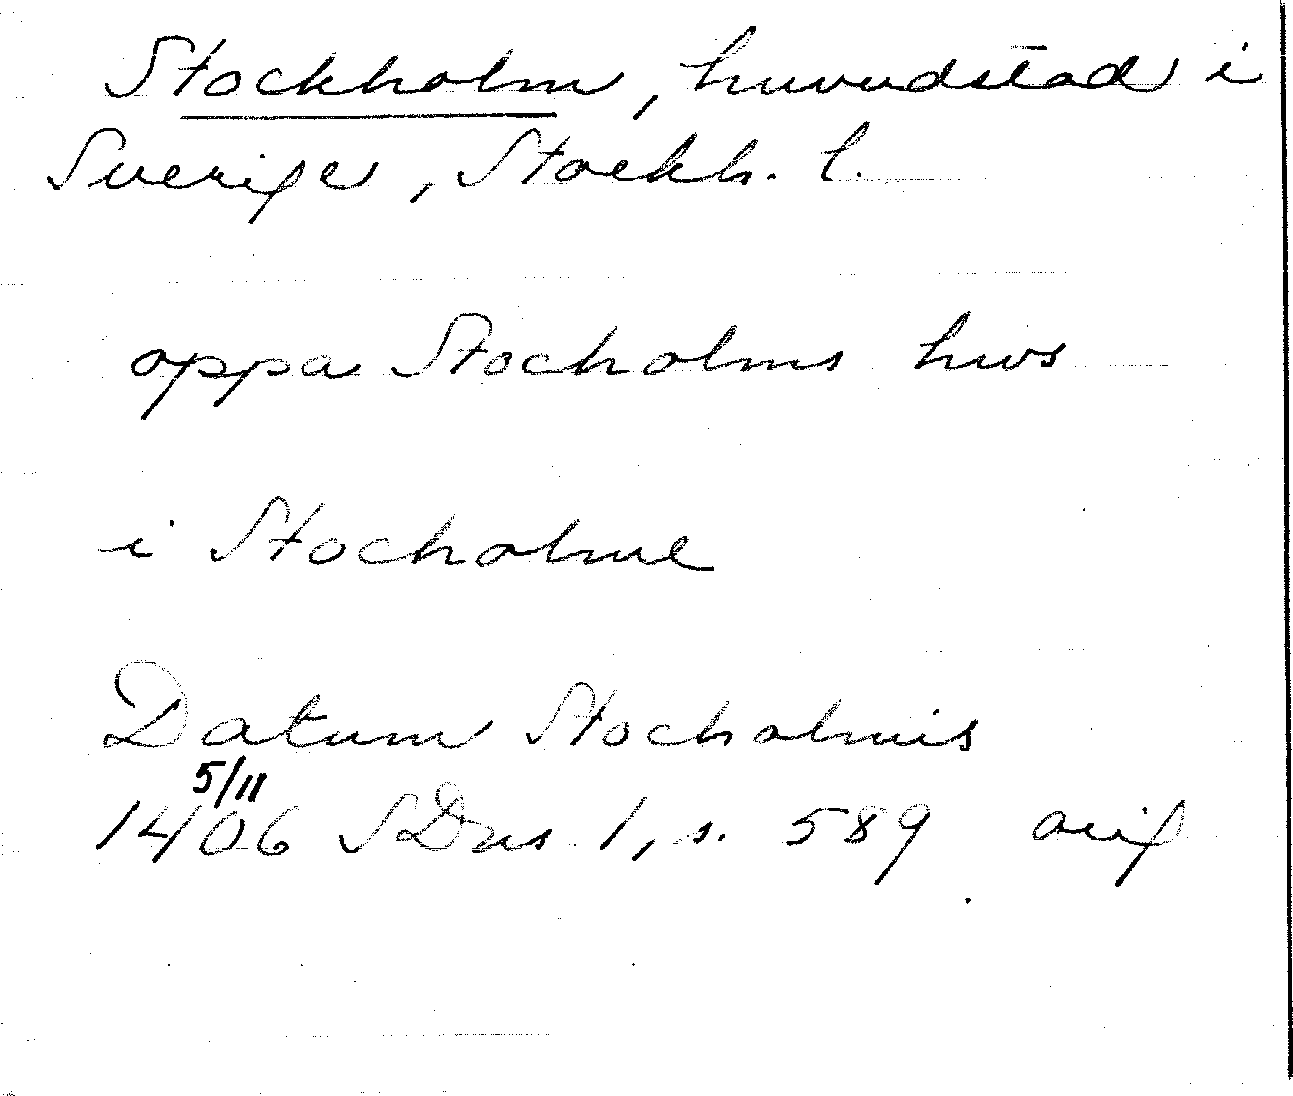 Stockholm, huvudstad i
Sverige, Stockh. l.
oppa Stocholms hws
i Stocholme
Datum Stocholmis
5/11
1406 SDns 1, s. 589 orig